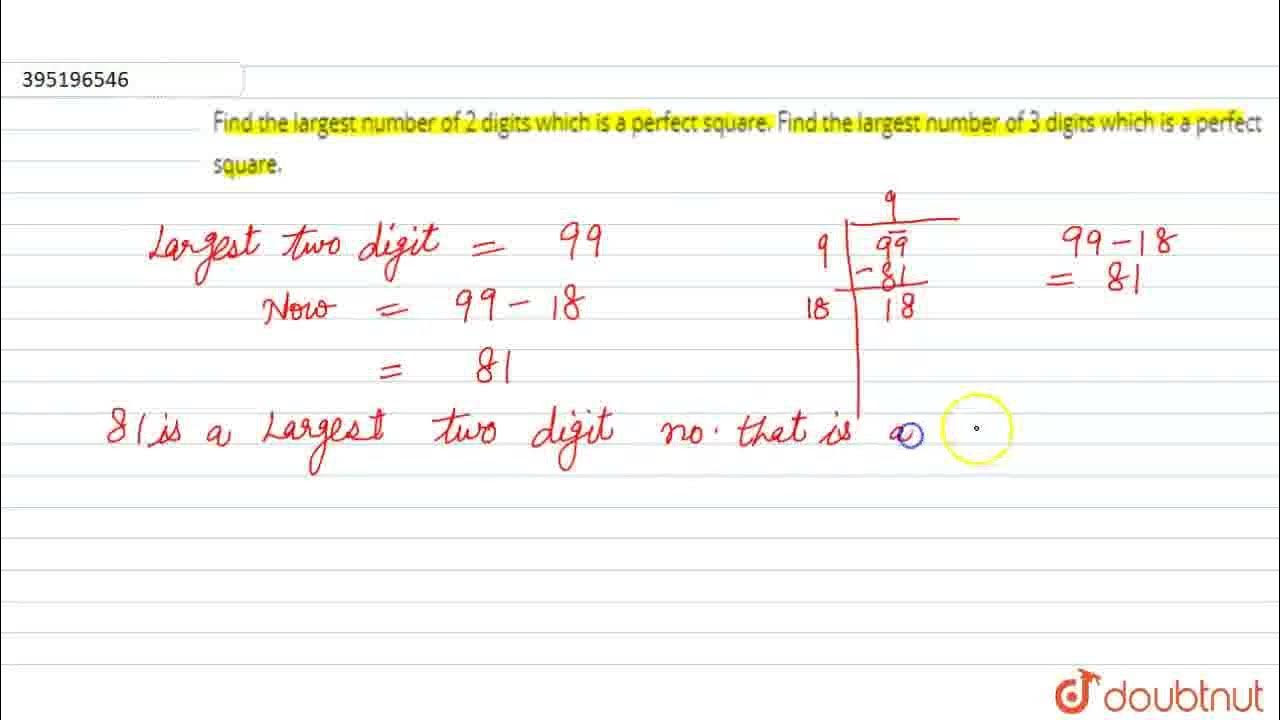 395196546
Find the largest number of 2 digits which is a perfect square. Find the largest number of 3 digits which is a perfect
square.
Largest two digit = 99
Now = 99 - 18
= 81
9
9 99
- 81
18 18
99 - 18
= 81
81 is a Largest two digit no. that is a
doubtnut